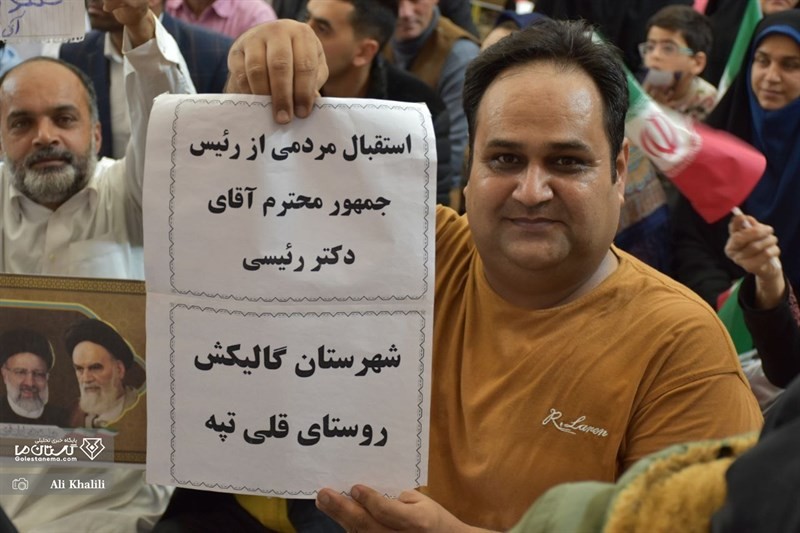 استقبال مردمی از رئیس
جمهور محترم آقای
دکتر رئیسی
شهرستان گالیکش
روستای قلی تپه
R. Laron
پایگاه خبری تحلیلی
گلستان ما
Golestanema.com
Ali Khalili